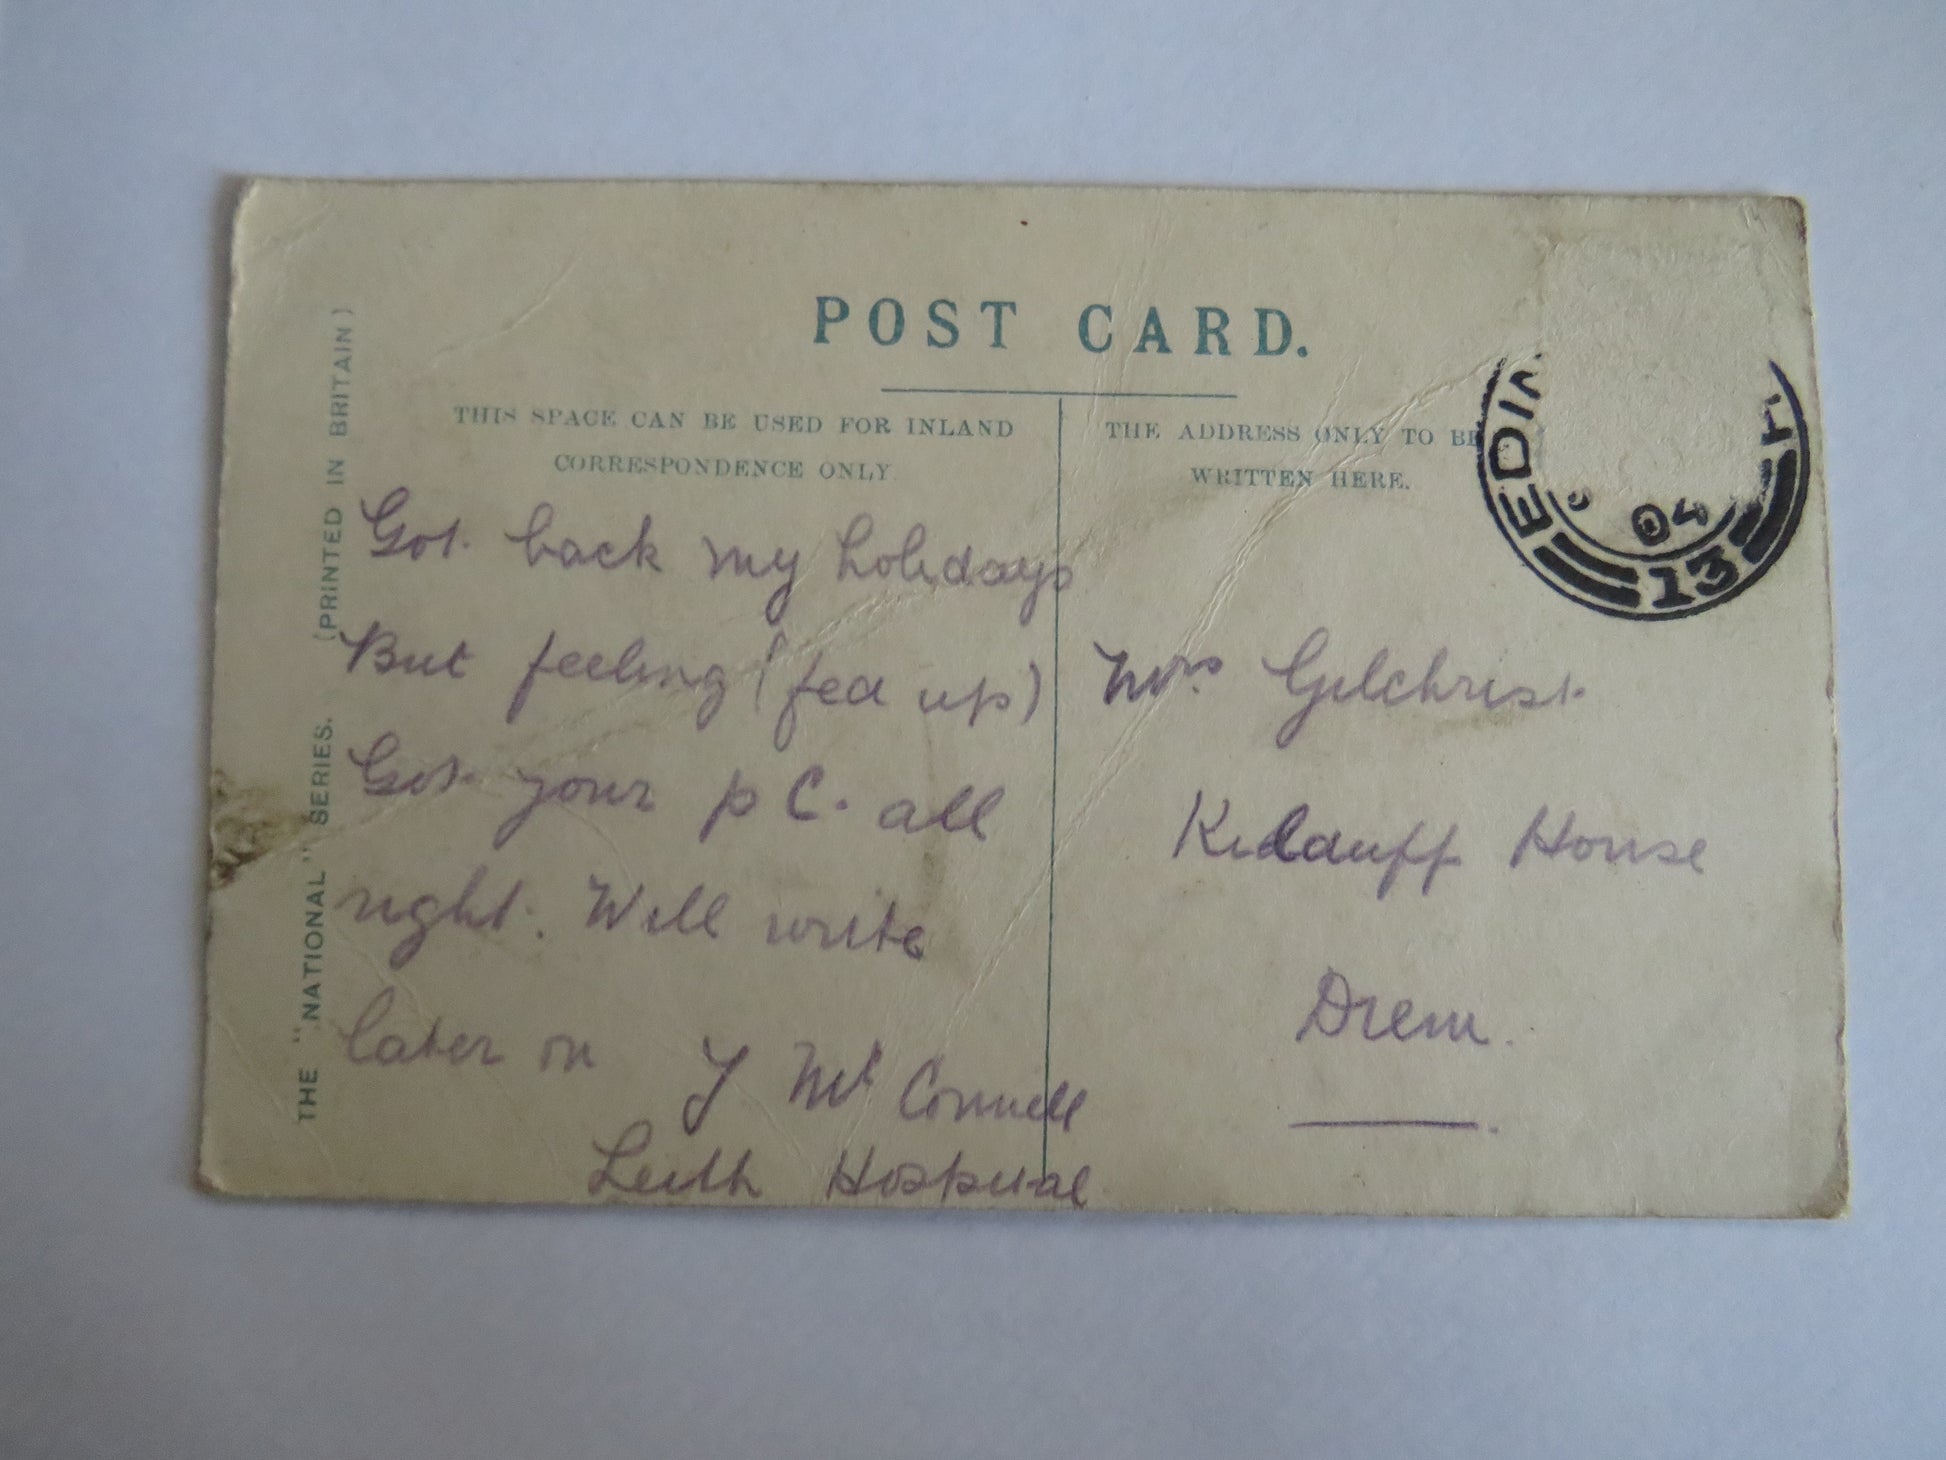 POST CARD.
THIS SPACE CAN BE USED FOR INLAND
CORRESPONDENCE ONLY.
THE ADDRESS ONLY TO BE
WRITTEN HERE.
Got back my holidays
But feeling (fed up)
Got your p C. all
right. Will write
later on
Mc Connell
Leith Hospital
Mrs Gilchrist
Kilduff House
Drem.
THE "NATIONAL" SERIES. (PRINTED IN BRITAIN)
EDIN
04
13